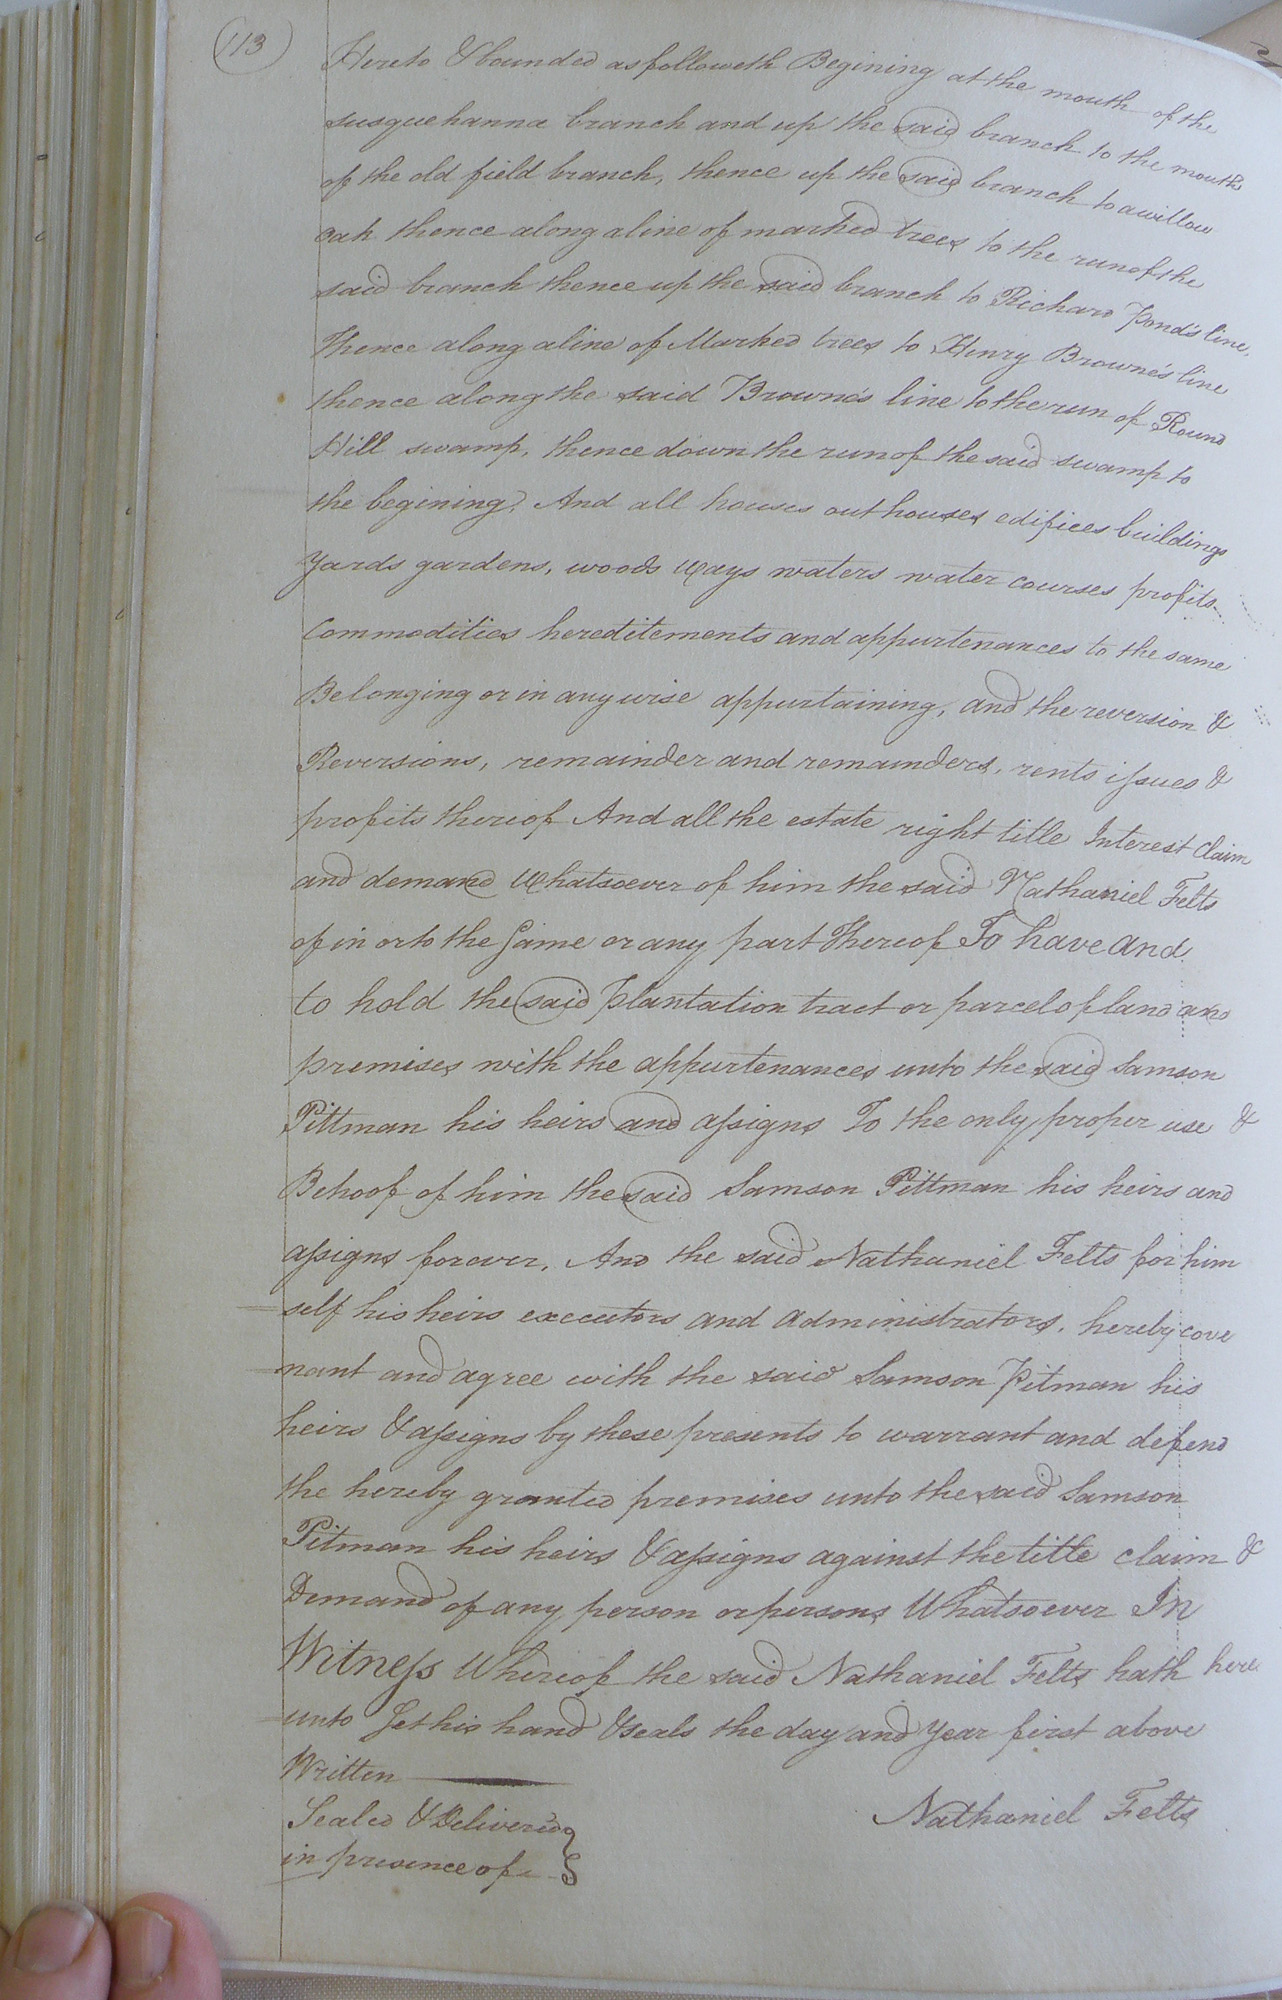 113
Hereto & bounded as followeth Begining at the mouth of the
susquehanna branch and up the said branch to the mouth
of the old field branch, thence up the said branch to a willow
oak thence along a line of marked trees to the run of the
said branch thence up the said branch to Richard Pond's line,
Thence along a line of Marked trees to Henry Browne's line
thence along the said Browne's line to the run of Round
Hill swamp, thence down the run of the said swamp to
the begining, And all houses outhouses edifices buildings
Yards gardens, woods ways waters water courses profits
Commodities hereditements and appurtenances to the same
Belonging or in any wise appurtaining, and the reversion &
Reversions, remainder and remainders, rents issues &
profits thereof And all the estate right title Interest Claim
and demand Whatsoever of him the said Nathaniel Felts
of in or to the Same or any part Thereof To have and
to hold the said Plantation tract or parcel of land and
premises with the appurtenances unto the said Samson
Pittman his heirs and assigns To the only proper use &
Behoof of him the said Samson Pittman his heirs and
assigns forever, And the said Nathaniel Felts for him
self his heirs executors and administrators, hereby cove
nant and agree with the said Samson Pitman his
heirs & assigns by these presents to warrant and defend
the hereby granted premises unto the said Samson
Pitman his heirs & assigns against the title claim &
Demand of any person or persons Whatsoever In
Witness Whereof the said Nathaniel Felts hath here
unto Set his hand & seals the day and year first above
Written
Sealed & Delivered
in presence of
Nathaniel Felts